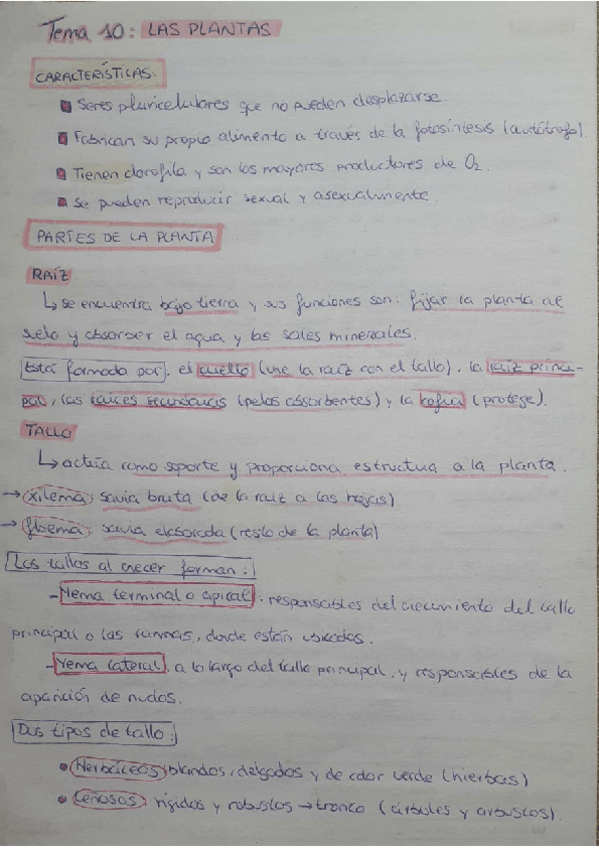 Tema 10: LAS PLANTAS
CARACTERÍSTICAS.
Seres pluricelulares que no pueden desplazarse.
Fabrican su propio alimento a través de la fotosíntesis (autótrofo).
Tienen clorofila y son los mayores productores de O₂.
Se pueden reproducir sexual y asexualmente.
PARTES DE LA PLANTA
RAÍZ
↳ se encuentra bajo tierra y sus funciones son: fijar la planta al
suelo y absorber el agua y las sales minerales.
Está formada por: el cuello (une la raíz con el tallo), la raíz princi-
pal, las raíces secundarias (pelos absorbentes) y la cofia (protege).
TALLO
↳ actúa como soporte y proporciona estructura a la planta.
→ xilema: savia bruta (de la raíz a las hojas)
→ floema: savia elaborada (resto de la planta)
Los tallos al crecer forman:
- Yema terminal o apical: responsables del crecimiento del tallo
principal o las ramas, donde están ubicados.
- Yema lateral: a lo largo del tallo principal, y responsables de la
aparición de nudos.
Dos tipos de tallo:
• Herbáceos: blandos, delgados y de color verde (hierbas)
• Leñosos: rígidos y robustos → tronco (árboles y arbustos).